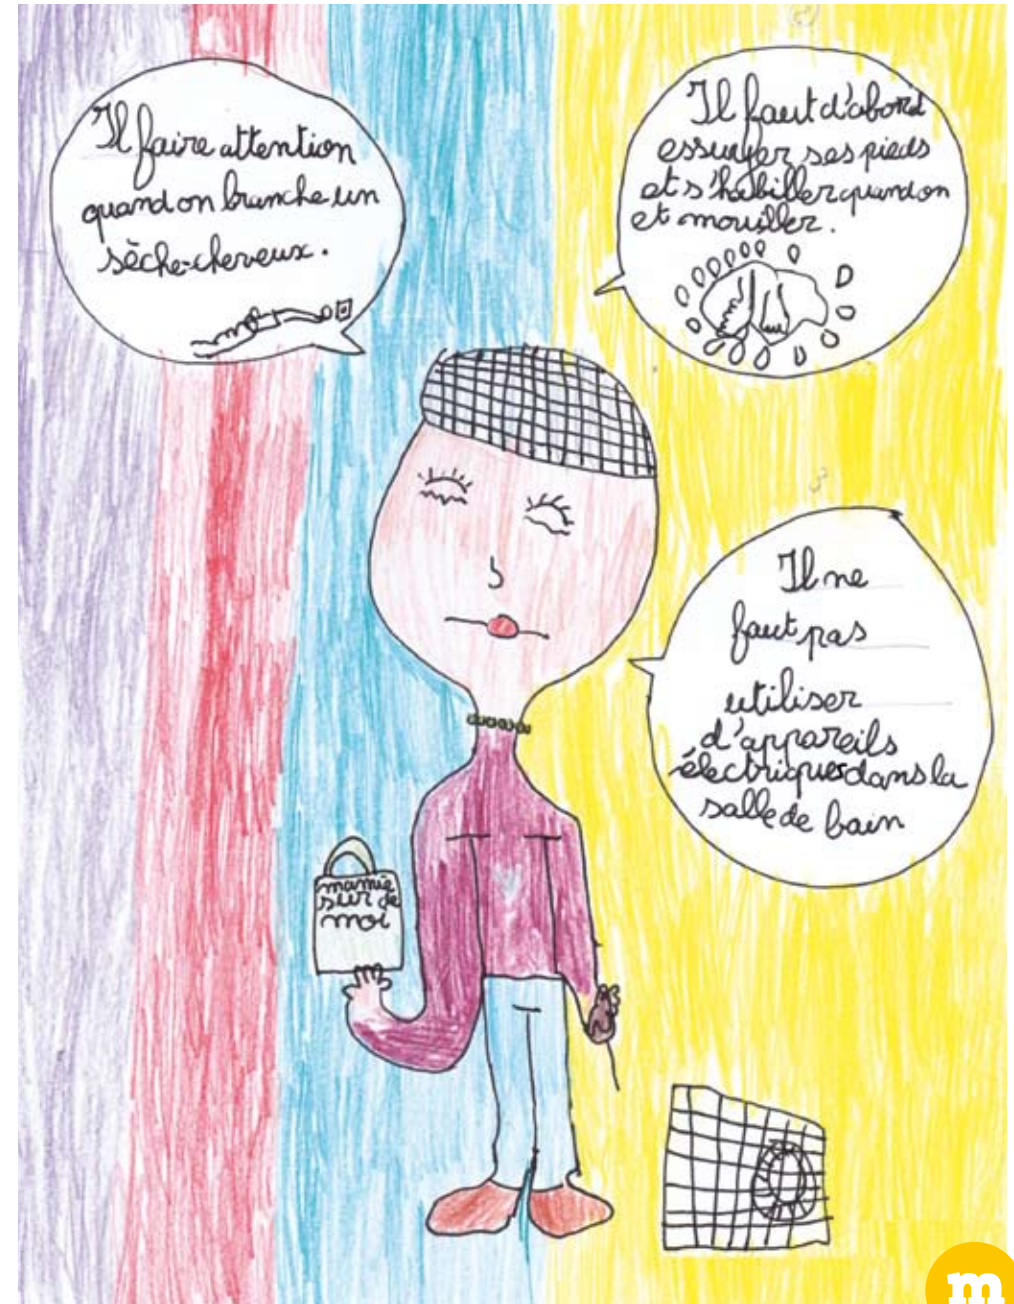 Il faire attention
quand on branche un
sèche-cheveux.
Il faut d'abord
essuyer ses pieds
et s'habiller quand on
et mouiller.
Il ne
faut pas
utiliser
d'appareils
électriques dans la
salle de bain
mamie
sur de
moi
m